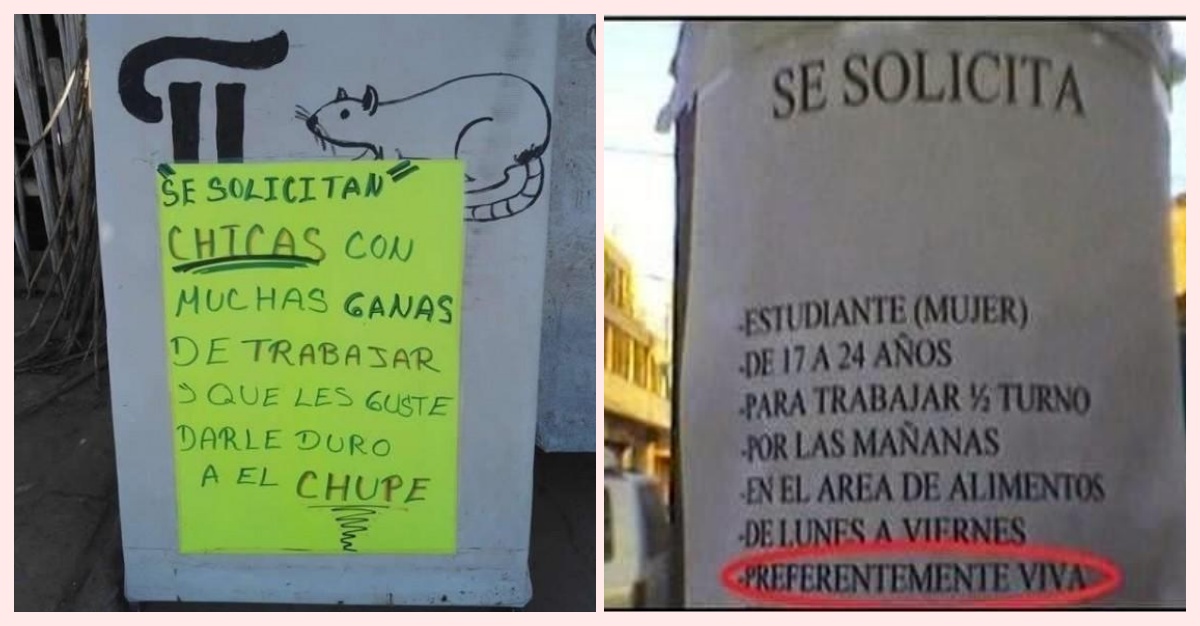 SE SOLICITAN
CHICAS CON
MUCHAS GANAS
DE TRABAJAR
Y QUE LES GUSTE
DARLE DURO
A EL CHUPE
SE SOLICITA
-ESTUDIANTE (MUJER)
-DE 17 A 24 AÑOS
-PARA TRABAJAR ½ TURNO
-POR LAS MAÑANAS
-EN EL AREA DE ALIMENTOS
-DE LUNES A VIERNES
-PREFERENTEMENTE VIVA